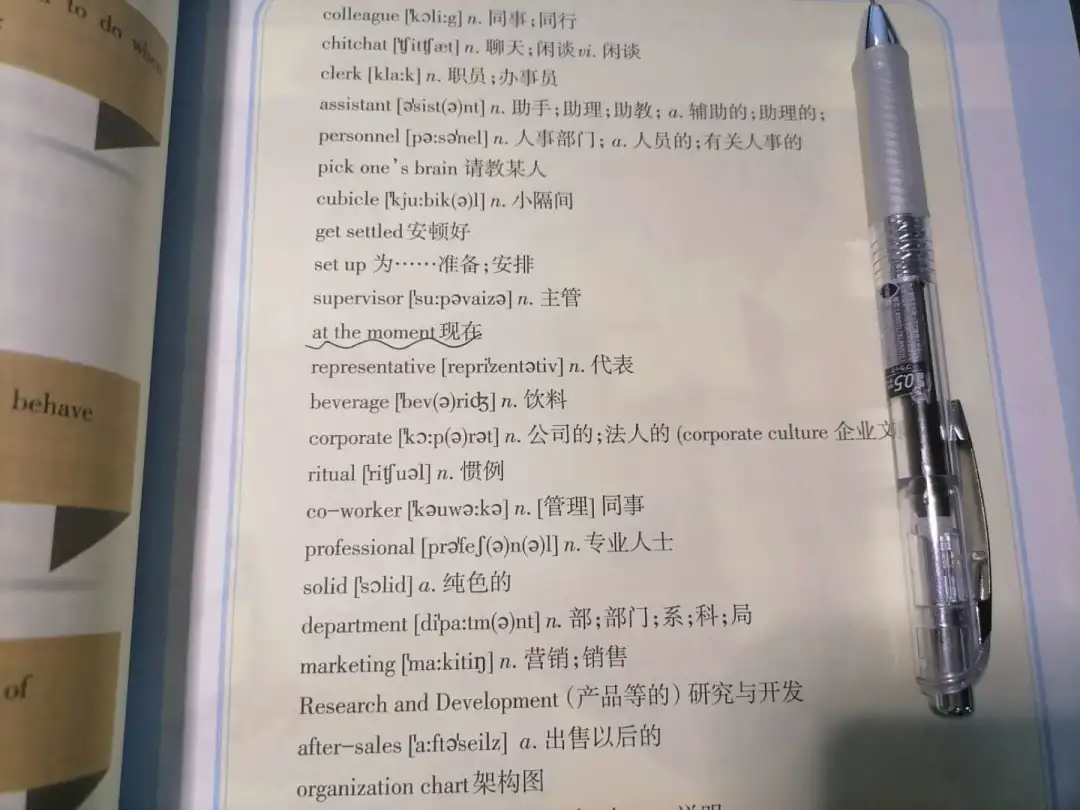 to do when
behave
of
colleague ['kɔli:g] n. 同事;同行
chitchat ['tʃittʃæt] n. 聊天;闲谈vi. 闲谈
clerk [kla:k] n. 职员;办事员
assistant [ə'sist(ə)nt] n. 助手;助理;助教; a. 辅助的;助理的;
personnel [pə:sə'nel] n. 人事部门; a. 人员的;有关人事的
pick one's brain 请教某人
cubicle ['kju:bik(ə)l] n. 小隔间
get settled安顿好
set up 为……准备;安排
supervisor ['su:pəvaizə] n. 主管
at the moment现在
representative [repri'zentətiv] n. 代表
beverage ['bev(ə)ridʒ] n. 饮料
corporate ['kɔ:p(ə)rət] n. 公司的;法人的 (corporate culture 企业文
ritual ['ritʃuəl] n. 惯例
co-worker ['kəuwə:kə] n. [管理] 同事
professional [prə'feʃ(ə)n(ə)l] n.专业人士
solid ['sɔlid] a. 纯色的
department [di'pa:tm(ə)nt] n. 部;部门;系;科;局
marketing ['ma:kitiŋ] n. 营销;销售
Research and Development (产品等的) 研究与开发
after-sales ['a:ftə'seilz] a. 出售以后的
organization chart架构图
0.5